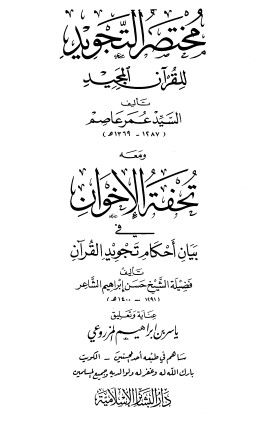 مُختَصَر التَّجويد
للقُرآن المَجيد
تأليف
السَّيِّد عُمَر عَاصِم
(١٢٨٧ - ١٣٦٩ هـ)
ومعه
تُحْفَةُ الإِخْوَانِ
في
بَيَانِ أَحْكَامِ تَجْوِيدِ القُرآنِ
تأليف
فَضِيلَة الشَّيْخ حَسَن إِبْرَاهِيم الشَّاعِر
(١٢٩١ - ١٤٠٠ هـ)
عناية وتعليق
ياسر بن إبراهيم المزروعي
ساهم في طبعه أحد المحسنين - الكويت
بارك الله له وغفر له ولوالديه وجميع المسلمين
دار البشائر الإسلامية